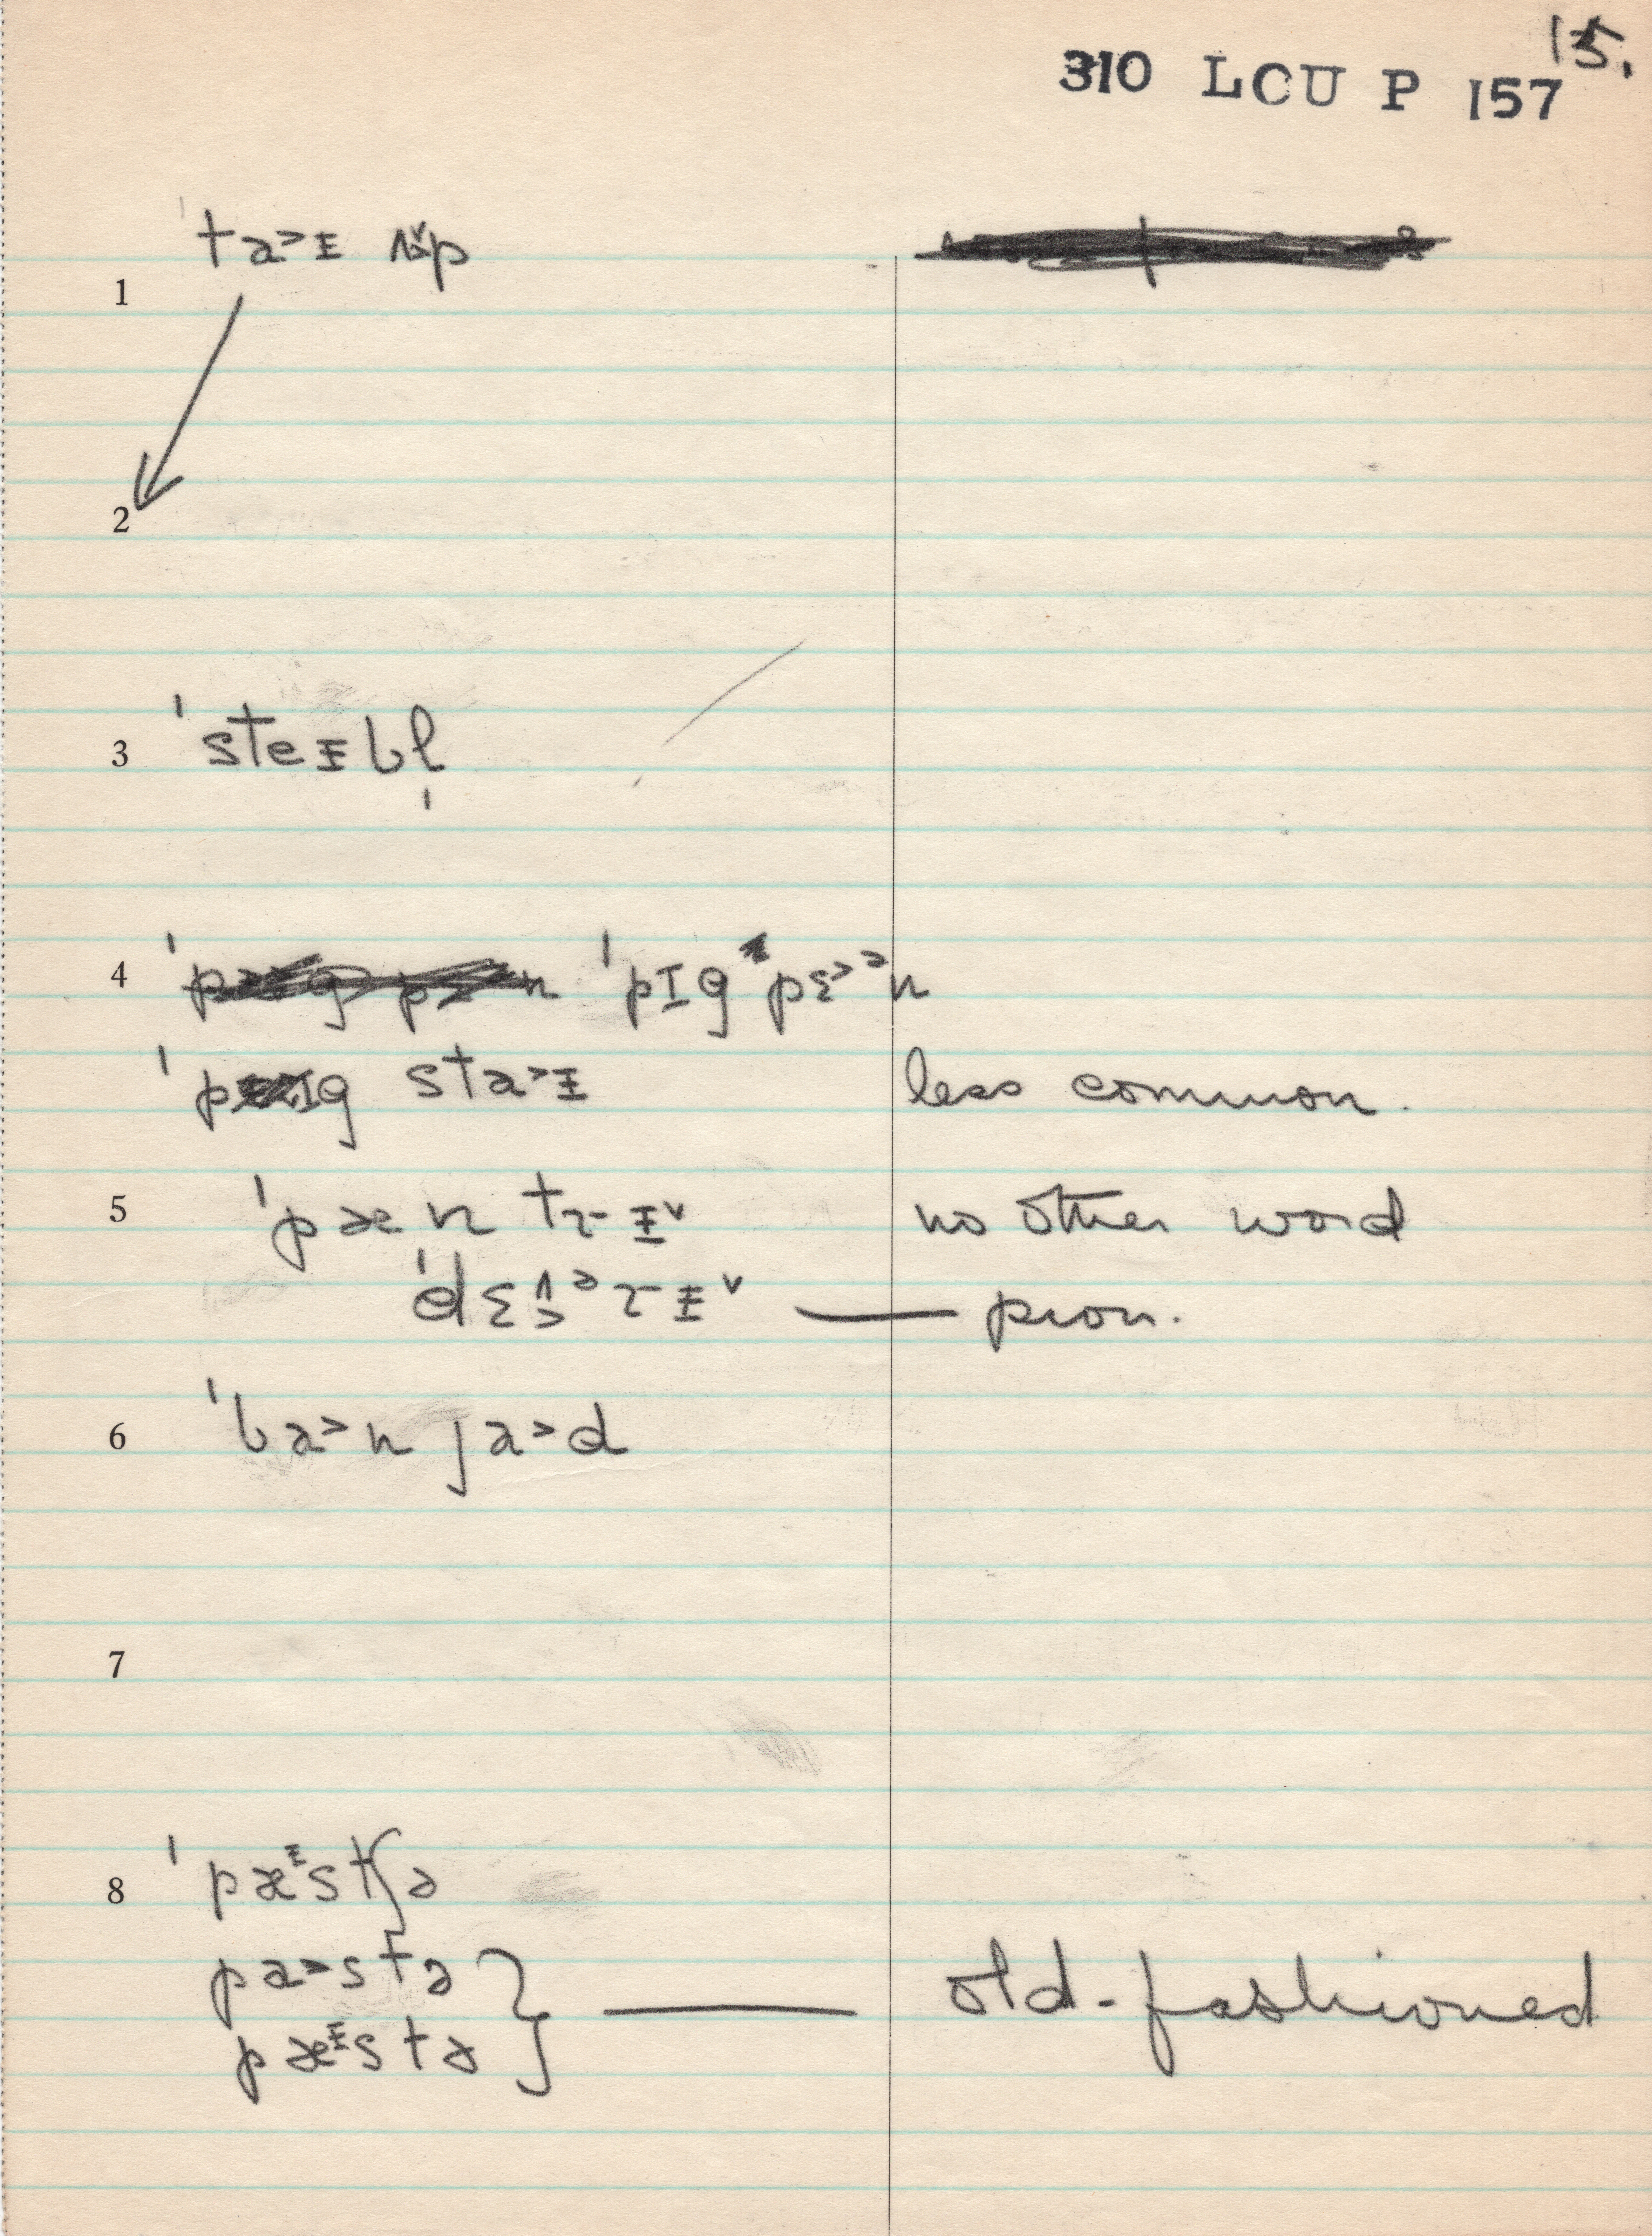 15.
310 LCU P 157
1 ta˃ᵻ ʌp
2
3 ˈsteᵻbl̩
4 ˈpɪg pɛ˃ᵊn
ˈpɪg sta˃ᵻ less common.
5 ˈpæntrᵻ˅ no other word
ˈdɛᵊrᵻ˅ — pron.
6 ˈba˃n ja˃d
7
8 ˈpæᵻstʃə
pa˃stə } — old-fashioned
pæᵻstə